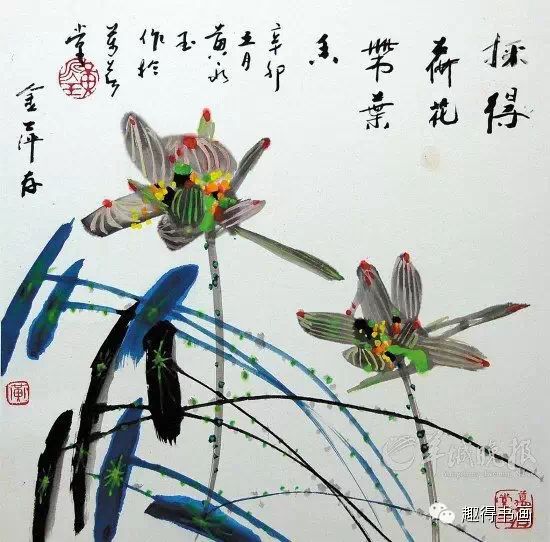 採得
荷花
帶葉
香
辛卯
五月
黄永
玉
作於
萬荷
堂
金萍存
羊城晚报
趣得书画